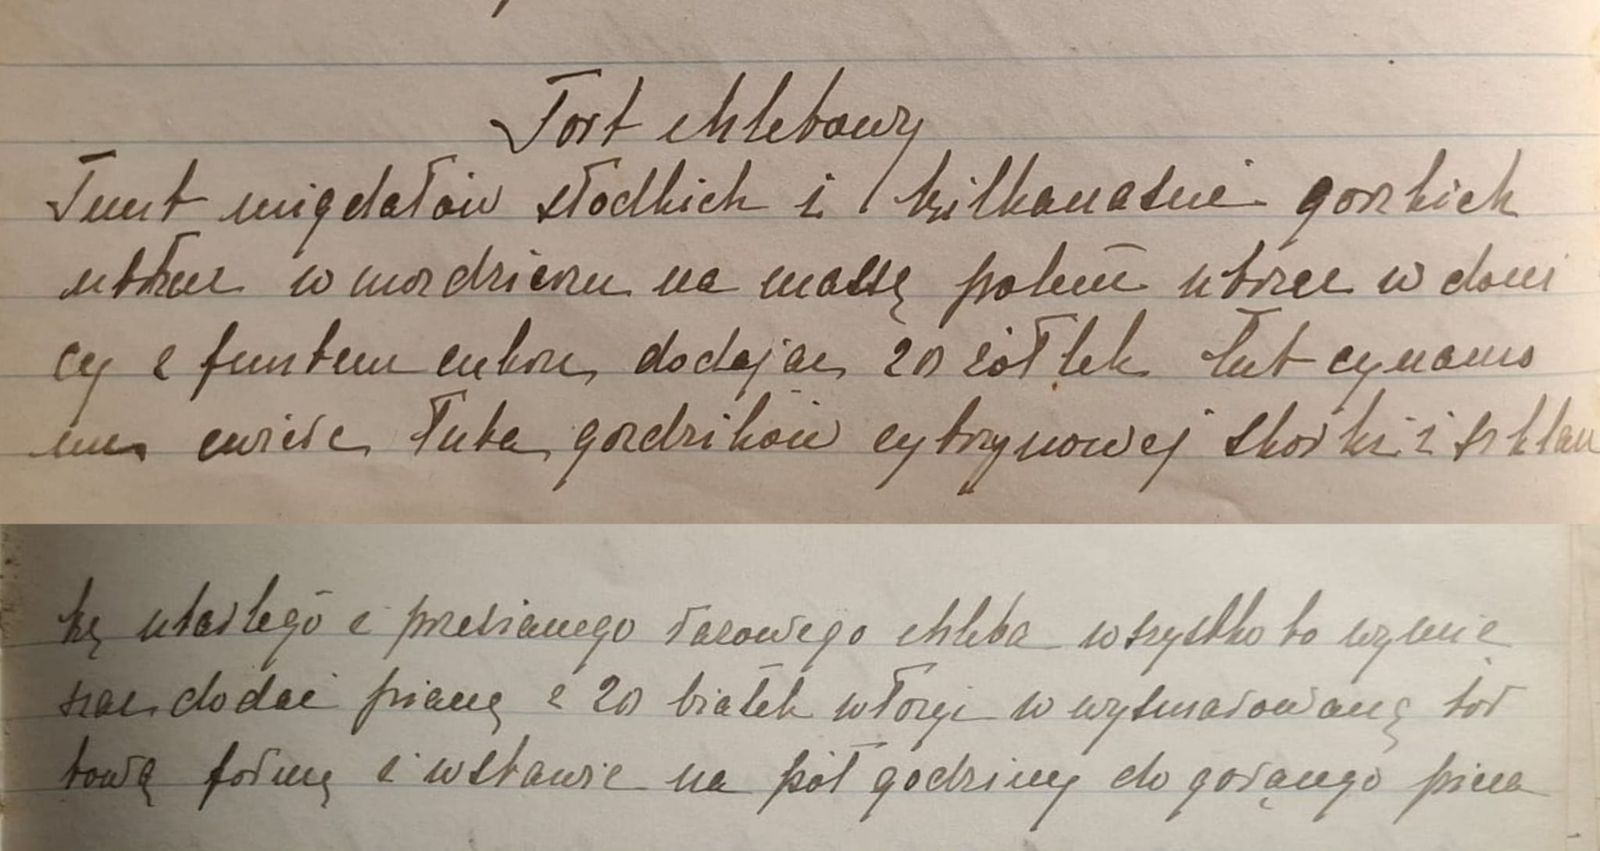 Tort chlebowy
Funt migdałów słodkich i kilkanaście gorzkich
utłuc w mozdzierzu na massę potem utrzec w doni
cy z funtem cukru, dodając 20 żółtek łut cynamo
nu ćwierć łuta gozdzików cytrynowej skórki i szklan
kę utartego i przesianego razowego chleba wszystko to wymie
szać dodać pianę z 20 białek włożyć w wysmarowaną tor
tową formę i wstawić na pół godziny do gorącego pieca